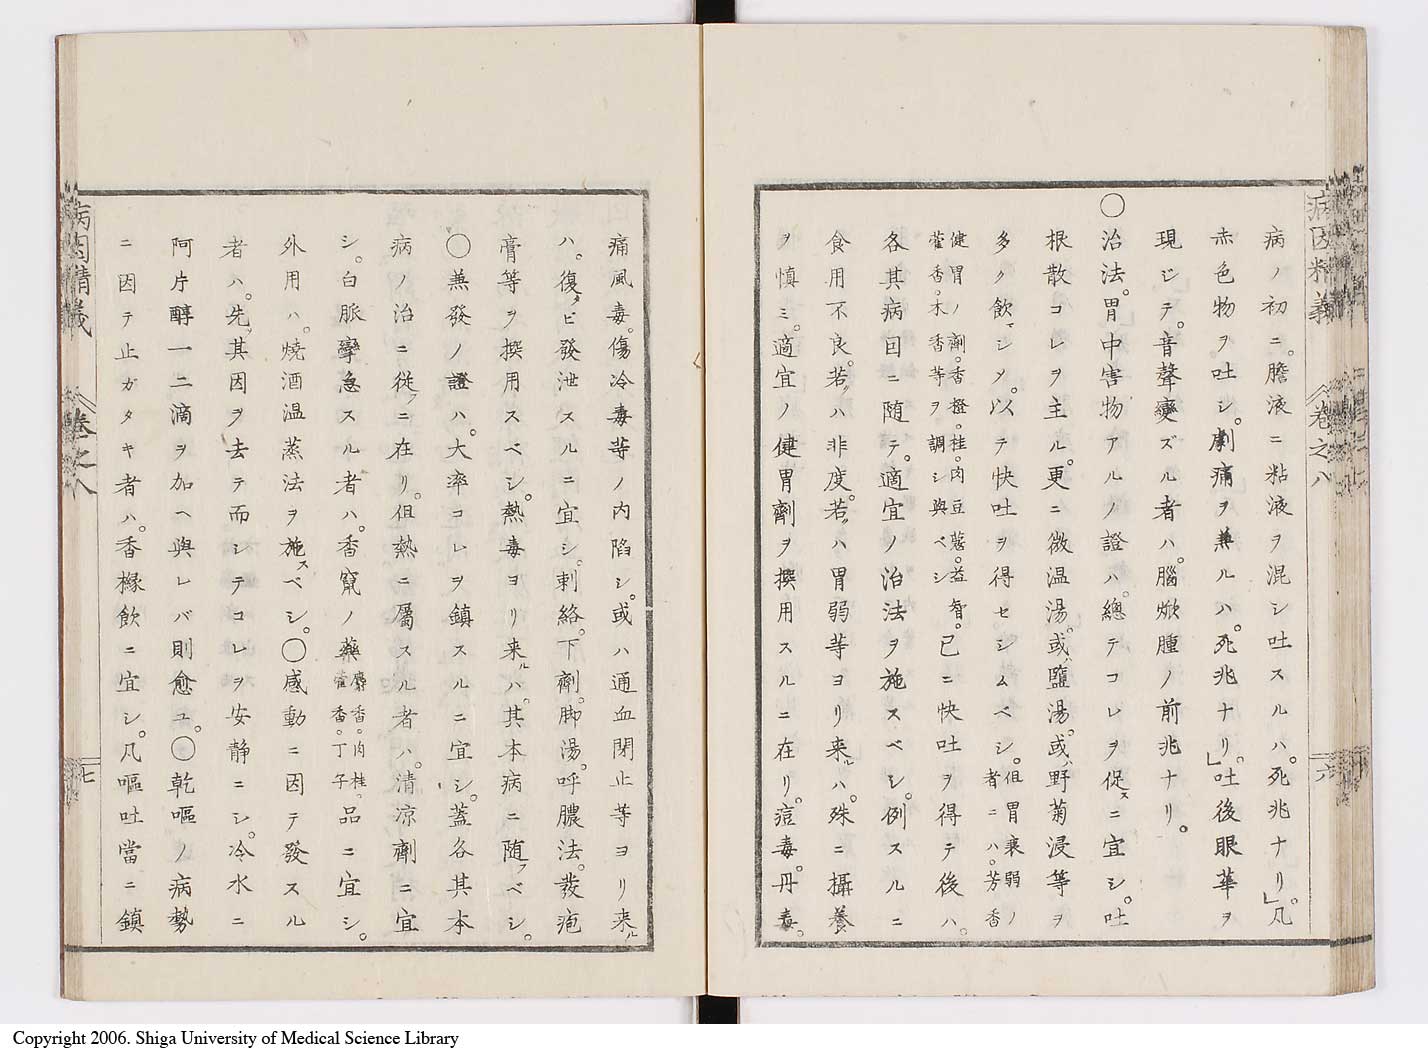 病因精義
卷之八
六
病ノ初ニ。膽液ニ粘液ヲ混シ吐スルハ。死兆ナリ」。凡
赤色物ヲ吐シ。劇痛ヲ兼ルハ。死兆ナリ」。吐後眼華ヲ
現ジテ。音聲變ズル者ハ。腦焮腫ノ前兆ナリ。
○治法。胃中害物アルノ證ハ。總テコレヲ促スニ宜シ。吐
根散コレヲ主ル。更ニ微温湯。或ハ鹽湯。或ハ野菊浸等ヲ
多ク飲マシメ。以テ快吐ヲ得セシムベシ。但胃衰弱ノ者ニハ。芳香
健胃ノ劑。香橙。桂。肉豆蔲。益智。藿香。木香等ヲ調シ與ベシ 已ニ快吐ヲ得テ後ハ。
各其病因ニ随テ。適宜ノ治法ヲ施スベシ。例スルニ
食用不良。若クハ非度。若クハ胃弱等ヨリ来ルハ。殊ニ攝養
ヲ慎ミ。適宜ノ健胃劑ヲ撰用スルニ在リ。痘毒。丹毒。
痛風毒。傷冷毒等ノ内陷シ。或ハ通血閉止等ヨリ来ル
ハ。復タビ發泄スルニ宜シ。刺絡。下劑。脚湯。呼膿法。發疱
膏等ヲ撰用スベシ。熱毒ヨリ来ルハ。其本病ニ随フベシ。
○兼發ノ證ハ。大率コレヲ鎮スルニ宜シ。蓋各其本
病ノ治ニ従フニ在リ。但熱ニ屬スル者ハ。清凉劑ニ宜
シ。白脈攣急スル者ハ。香竄ノ藥麝香。肉桂。藿香。丁子品ニ宜シ。
外用ハ。燒酒温蒸法ヲ施スベシ。○感動ニ因テ發スル
者ハ。先ヅ其因ヲ去テ而シテコレヲ安靜ニシ。冷水ニ
阿片醇一二滴ヲ加ヘ與レバ則愈ユ。○乾嘔ノ病勢
ニ因テ止ガタキ者ハ。香櫞飲ニ宜シ。凡嘔吐當ニ鎮
病因精義
卷之八
七
Copyright 2006. Shiga University of Medical Science Library